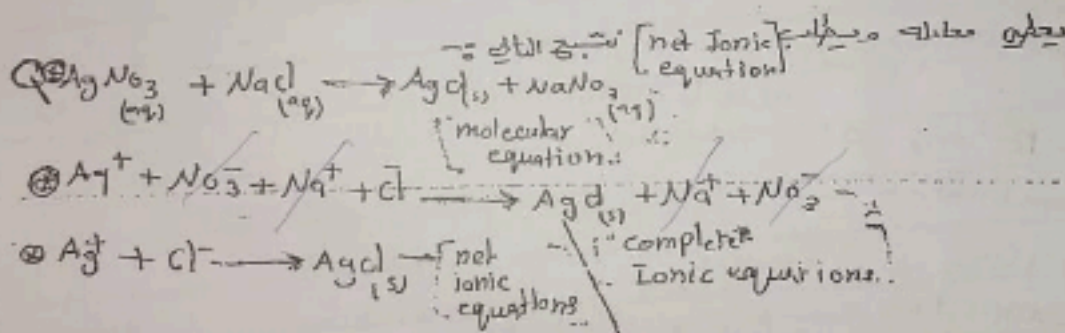 معادلة [net Ionic equation] نتبع التالي :-
Q ⊕ AgNO3 (aq) + NaCl (aq) → AgCl(s) + NaNO3 (aq)
"molecular equation"
⊕ Ag+ + NO3- + Na+ + Cl → AgCl (s) + Na+ + NO3-
"complete Ionic equations
⊕ Ag+ + Cl- → AgCl (s) → [net ionic equations